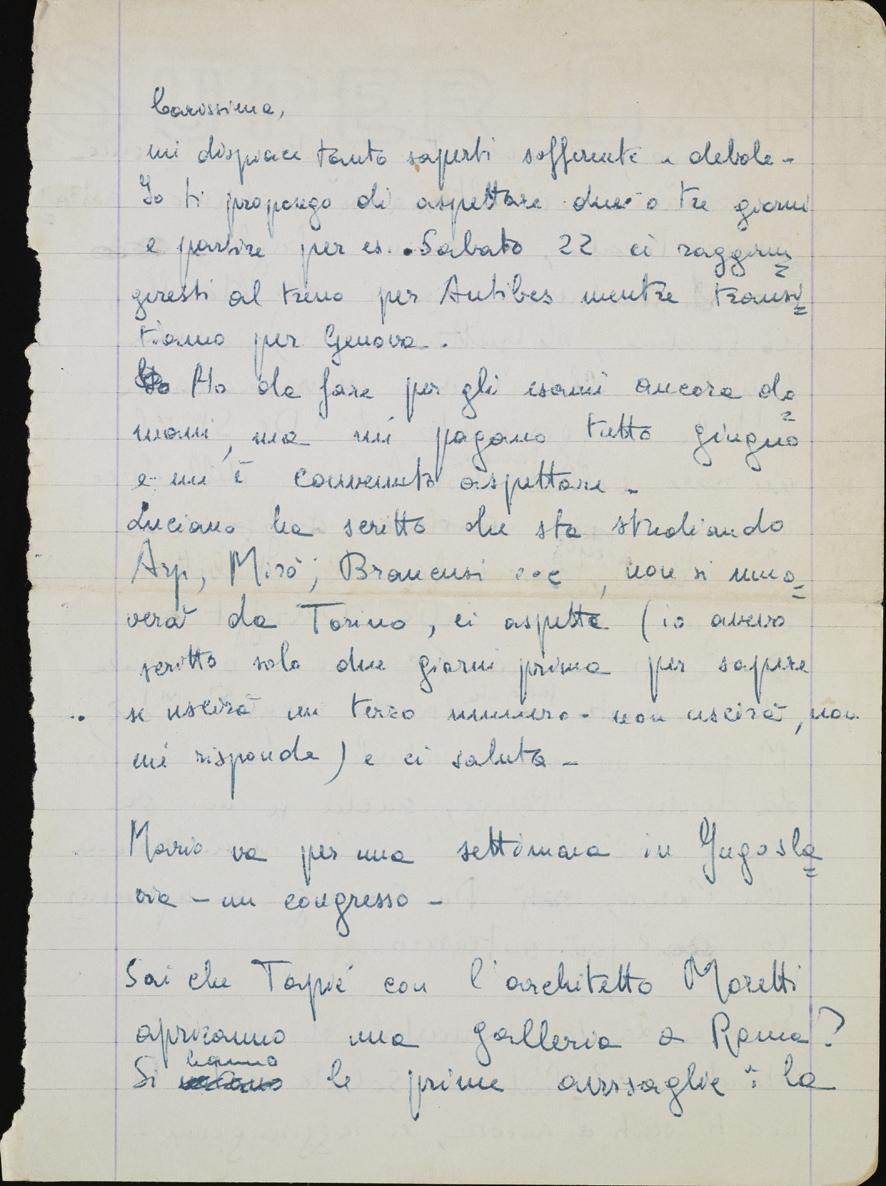 Carissima,
mi dispiace tanto saperti sofferente e debole -
Io ti propongo di aspettare due o tre giorni
e partire per es. Sabato 22 ci raggiun=
geresti al treno per Antibes mentre transi=
tiamo per Genova.
Ho da fare per gli esami ancora do=
mani, ma mi pagano tutto giugno
e mi è convenuto aspettare -
Luciano ha scritto che sta studiando
Arp, Mirò, Brancusi ecc, non si muo=
verà da Torino, ci aspetta (io avevo
scritto solo due giorni prima per sapere
se uscirà un terzo numero - non uscirà, non
mi risponde) e ci saluta -
Mario va per una settimana in Jugosla=
via - un congresso -
Sai che Tapié con l'architetto Moretti
apriranno una galleria a Roma?
Si hanno le prime avvisaglie: la